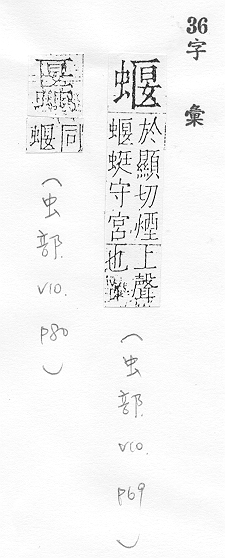 36
字彙
蝘
於顯切煙上聲
蝘蜓守宮也
(虫部. V10. P69)
同蝘
(虫部. V10. P80)